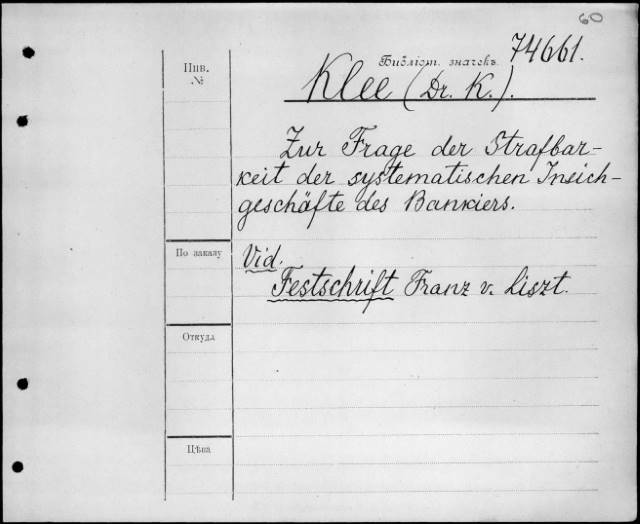 60
Библіот. значекъ 74661.
Инв.
№
Klee (Dr. K.).
Zur Frage der Strafbar-
keit der systematischen Insich-
geschäfte des Bankiers.
По заказу
Vid.
Festschrift Franz v. Liszt.
Откуда
Цѣна